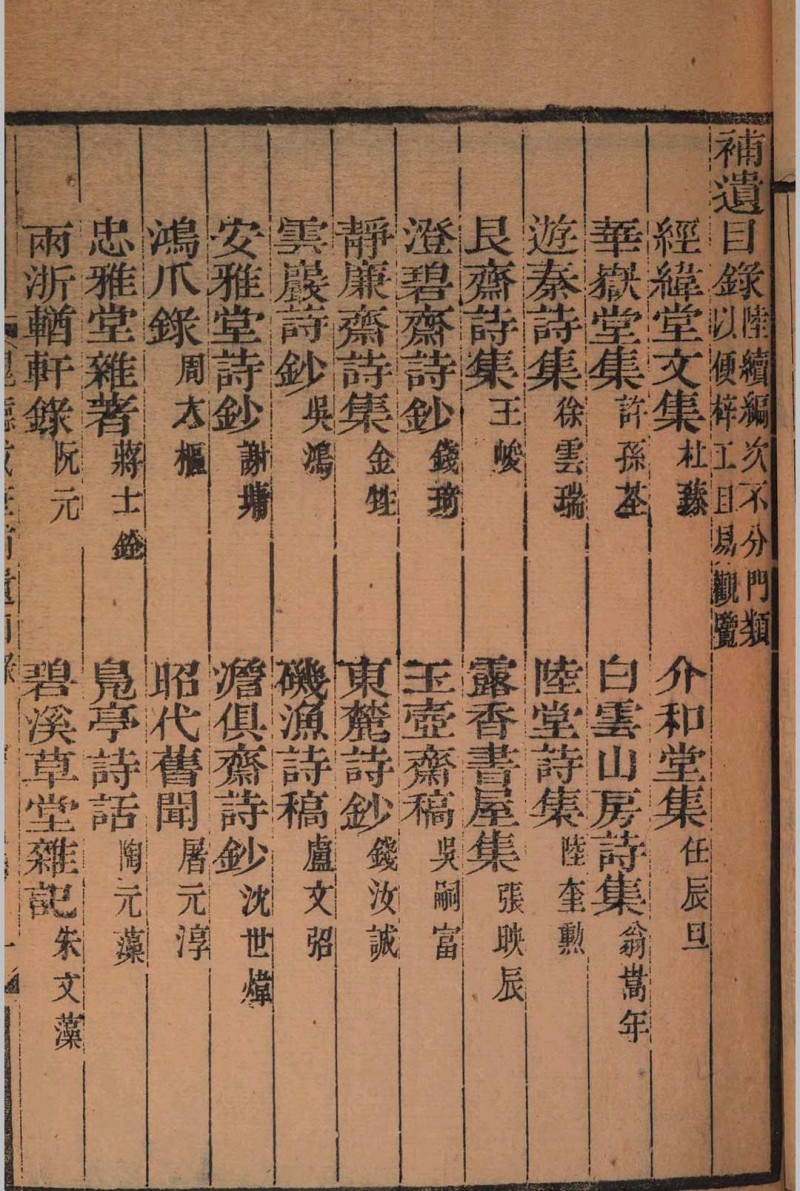 補遺目錄陸續編次不分門類以便梓工且易觀覽
經緯堂文集杜臻 介和堂集任辰旦
華嶽堂集許孫荃 白雲山房詩集翁嵩年
遊秦詩集徐雲瑞 陸堂詩集陸奎勲
艮齋詩集王峻 露香書屋集張映辰
澄碧齋詩鈔錢琦 玉壺齋稿吳嗣富
靜廉齋詩集金甡 東麓詩鈔錢汝誠
雲巖詩鈔吳鴻 磯漁詩稿盧文弨
安雅堂詩鈔謝墉 澹俱齋詩鈔沈世煒
鴻爪錄周大樞 昭代舊聞屠元淳
忠雅堂雜著蔣士銓 鳧亭詩話陶元藻
兩浙輶軒錄阮元 碧溪草堂雜記朱文藻